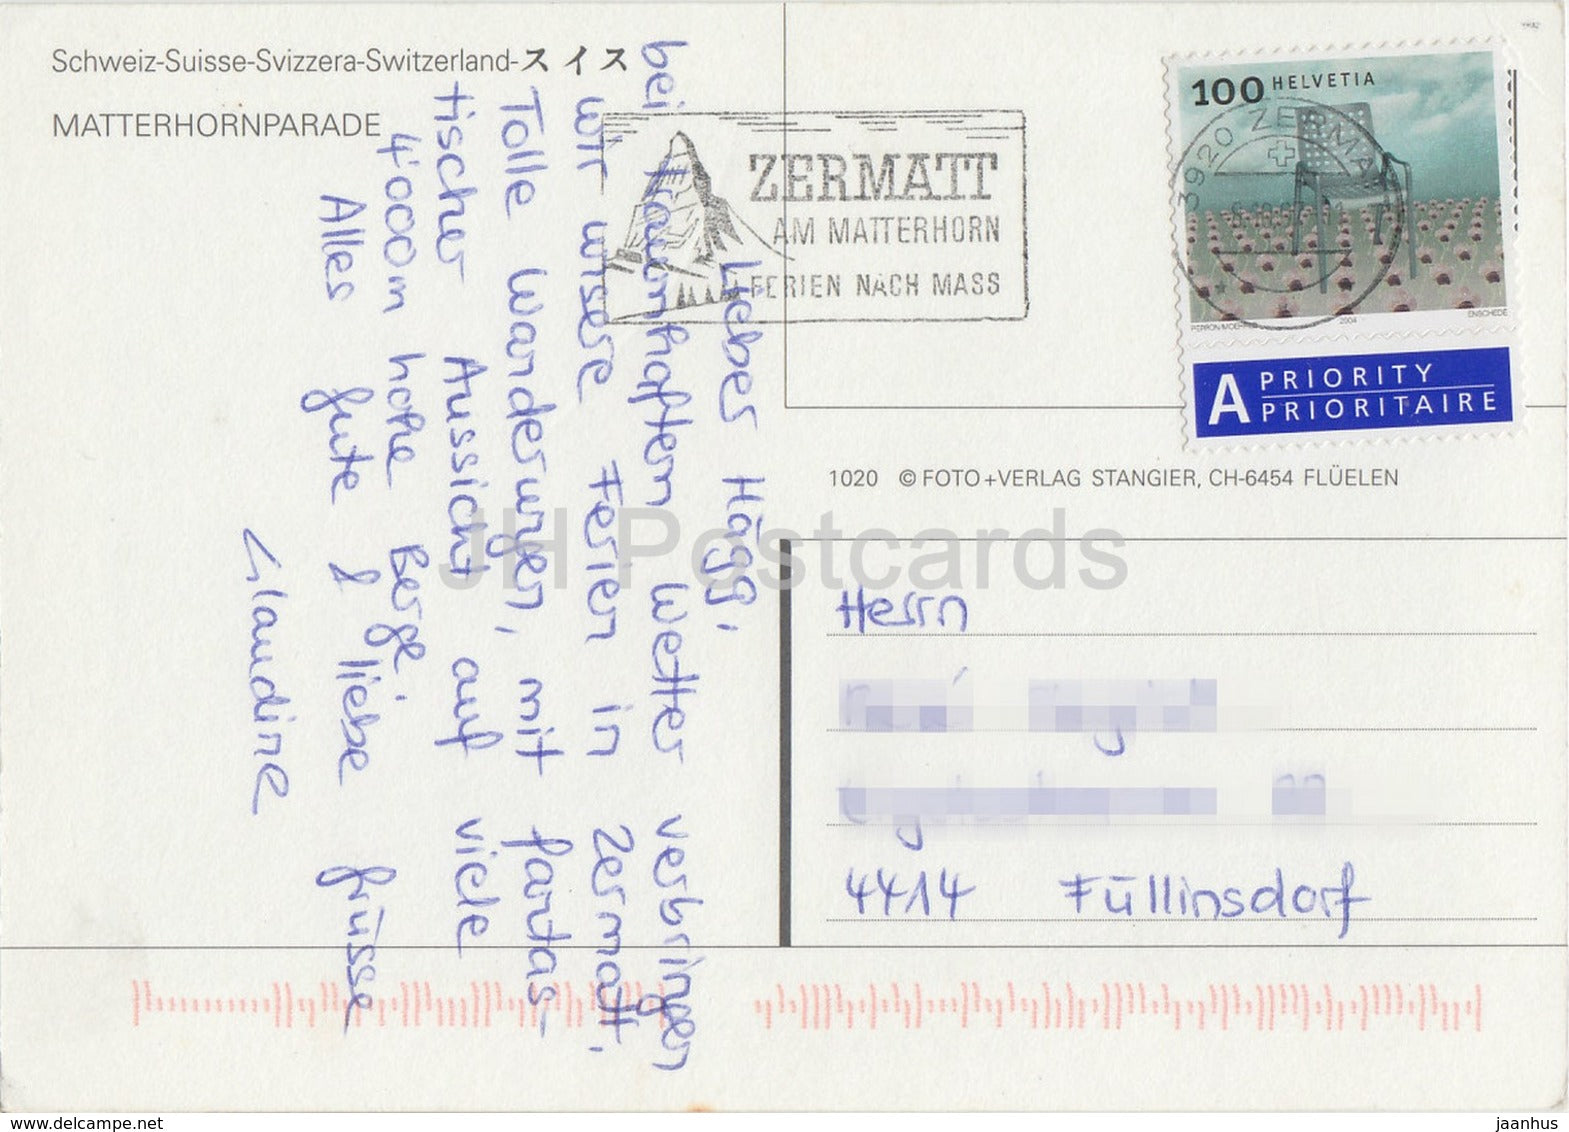 Schweiz-Suisse-Svizzera-Switzerland-スイス
MATTERHORNPARADE
Lieber Hägg,
bei traumhaftem Wetter verbringen
wir unsere Ferien in Zermatt.
Tolle Wanderungen, mit fantas-
tischer Aussicht auf viele
4'000m hohe Berge.
Alles gute & liebe Grüsse
Claudine
ZERMATT
AM MATTERHORN
FERIEN NACH MASS
100 HELVETIA
3920 ZERMA
PERRON/MOEHR
2004
ENSCHEDE
A PRIORITY
PRIORITAIRE
1020 © FOTO+VERLAG STANGIER, CH-6454 FLÜELEN
Herrn
4414 Füllinsdorf
JH Postcards
www.delcampe.net
jaanhus